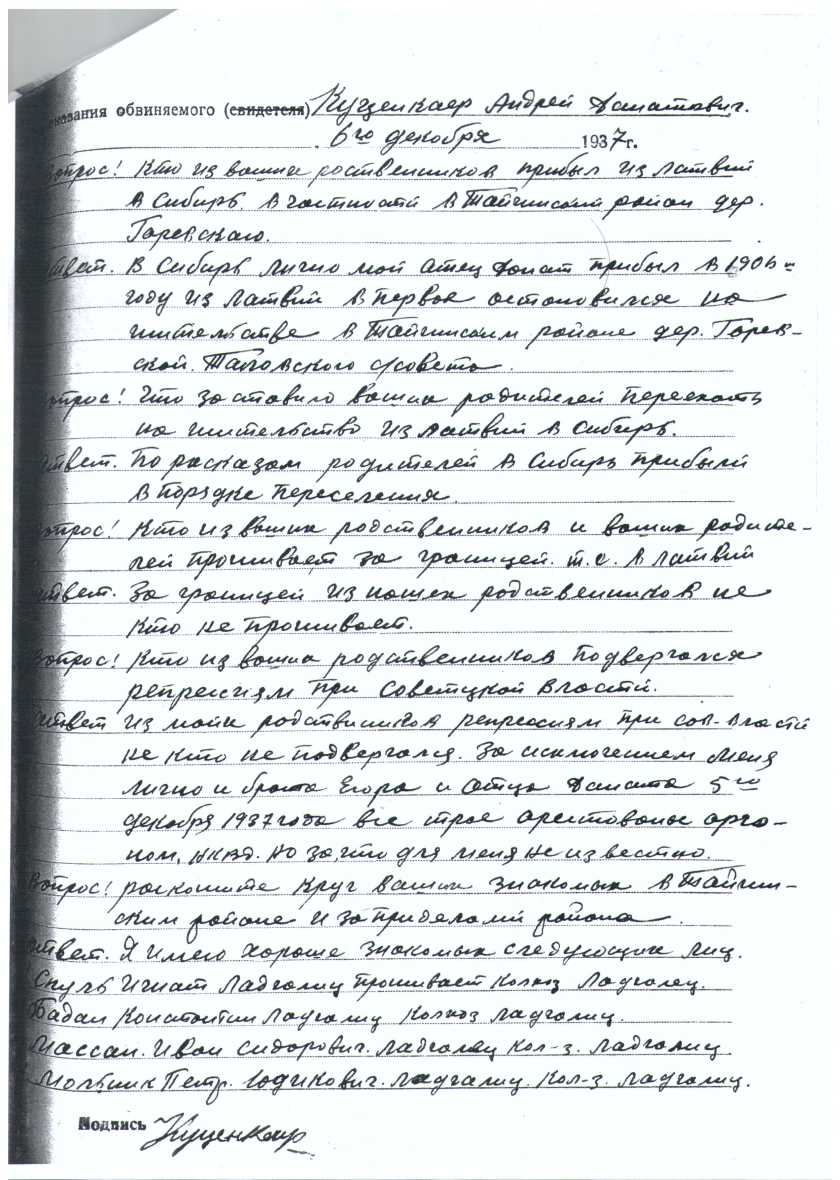 обвиняемого (свидетеля) Кущенкаер Андрей Данатович.
6го декабря 1937г.
Вопрос! Кто из ваших роственников прибыл из латвий
в Сибирь. в частности в Тайгинский район дер.
Горевскаю.
Ответ. В Сибирь лично мой отец Донат прибыл в 1906 м
году из латвий в первое остановился на
жительстве в Тайгинском районе дер. Горев-
ской.
Вопрос! Что заставило ваших родителей переехать
на жительство из латвий в Сибирь.
Ответ. По расказам родителей в Сибирь прибыли
в порядке переселения.
Вопрос! Кто из ваших родственников и ваших родите-
лей проживает за границей. т.е. в латвий
Ответ. За границей из нашех родственников не
кто не проживает.
Вопрос! Кто из ваших родственников подвергался
репрессиям при советцкой власти.
Ответ из моих родствиников репрессиям при сов-власти
не кто не подвергался. За исключением меня
лично и брата Егора и отца Даната 5го
декабря 1937 года все трое арестованы орга-
ном, НКВД. но за что для меня не известно.
Вопрос! раскажите круг ваших знакомых в Тайгин-
ским районе и за приделами района.
Ответ. Я имею хороше знакомых следующих лиц.
Скуль Игнат ладгалиц проживает колхоз ладгалец.
Бадан Константин ладгалиц колхоз ладгалиц.
Массан. Иван Сидорович. ладгалец кол-з. ладгалиц
Петр. ладгалиц. кол-з. ладгалиц.
Подпись Кущенкаер